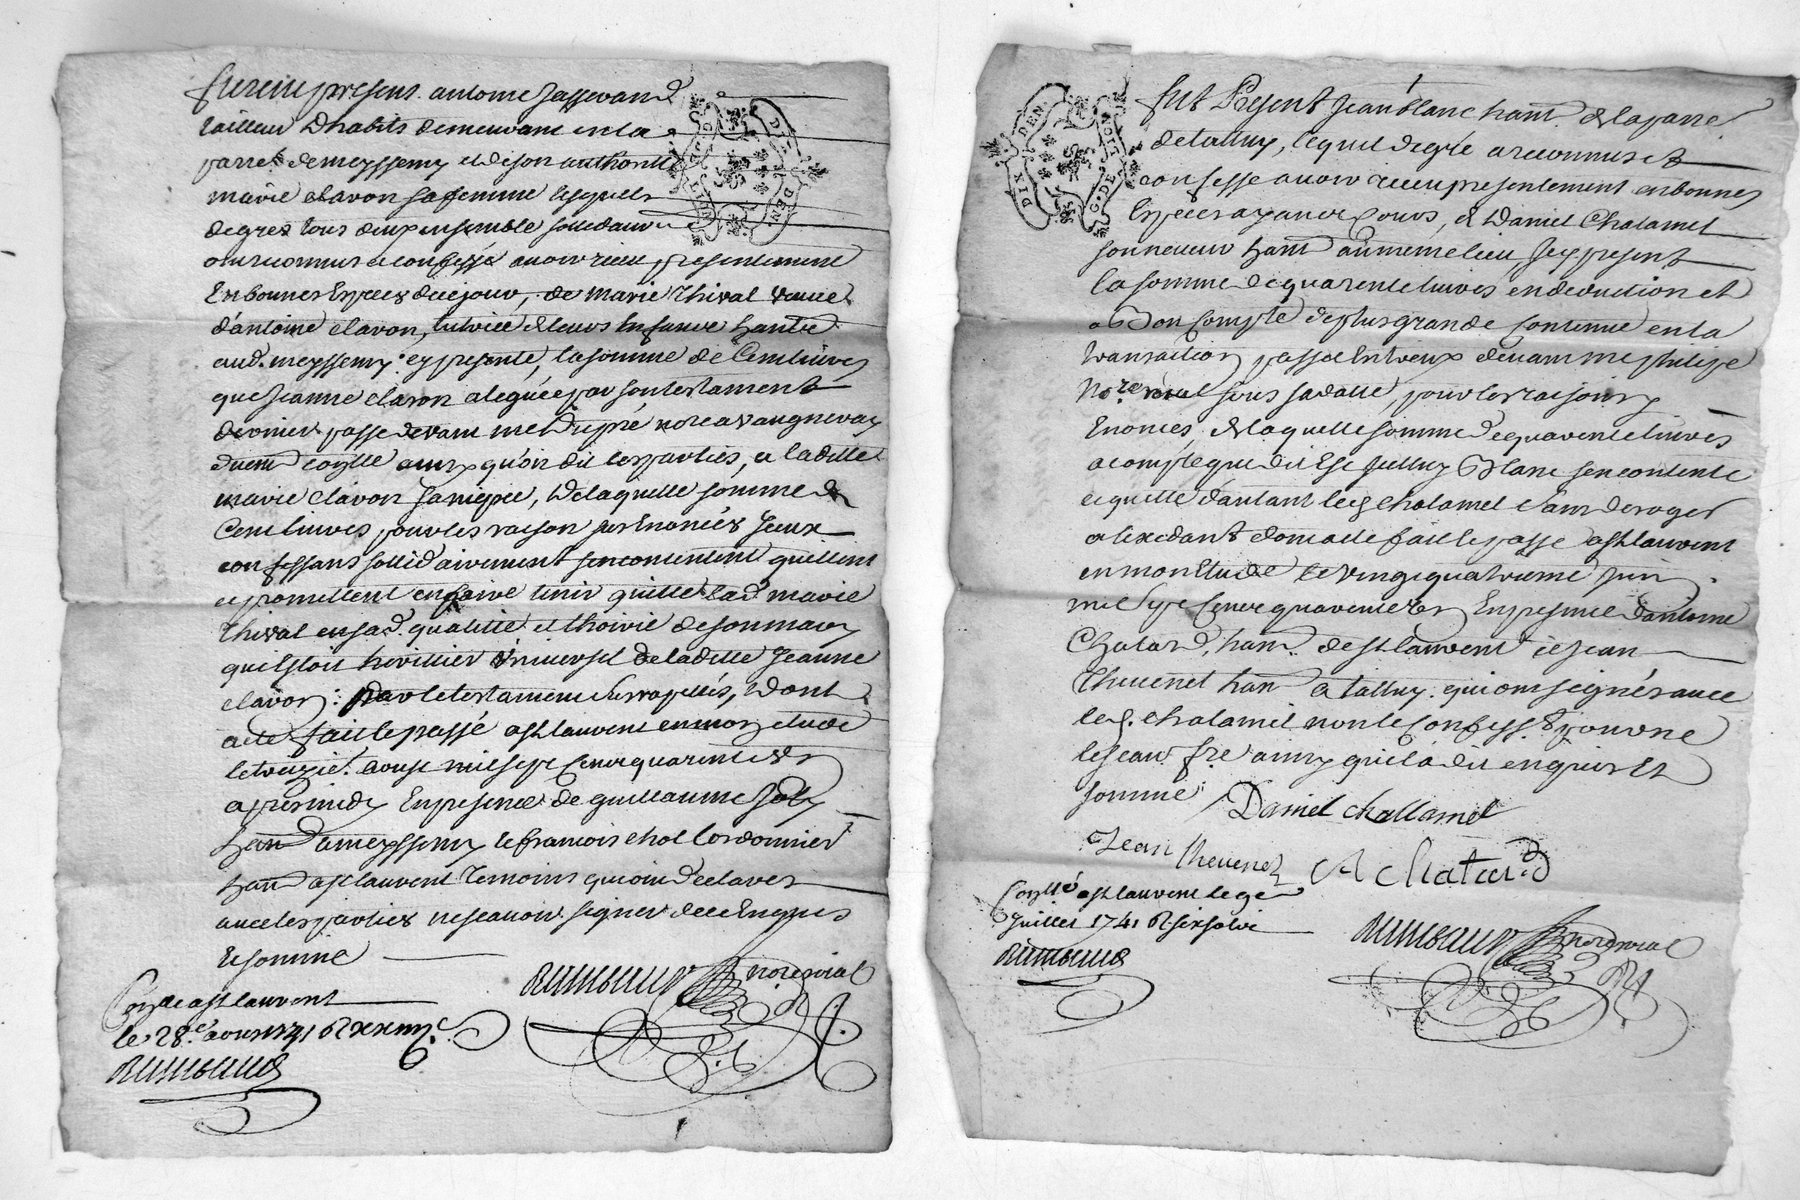 furent presens antoine Jasserand
tailleur Dhabits demeurant en la
parre de meyssemy et de son authorité
marie clavon sa femme lesquels
de gres tous deux ensemble sollidaire
ont reconnus et confessé avoir receu presentement
En bonnes Especes de ce jour, de marie Thival veuve
d'antoine clavon, tutrice de leurs Enfance hante
aud. meyssemy. cy presente, la somme de Cent livres
que Jeanne clavon a leguée par son testament
dernier passe devant me Dupré nore a vaugneray
duem control ainsy qu'on dit les parties, a ladille
marie clavon sa niepce, De laquelle somme de
Cent livres pour les raison sus Enoncés Jceux
confessans sollidairement sen contentent quittent
et promettent en faire tenir quitte lad. marie
Thival en sad. qualitté et lhoirie de son mary
qui Estoit herittier Vniversel de ladille Jeanne
clavon: par le testament susrapellés, Dont
acte fait et passé a st laurent en mon etude
le treizie. aoust mil sept cent quarente Vn
apres midy En presence de guillaume Joly
han a meyssemy et francois chol Cordonnier
han a st laurent temoins qui ont declarer
avec les parties ne scavoir signer de ce Enquis
et somme
Conlle a st laurent
le 28.e aoust 1741
nore royal
fut Present Jean blanc hant de la parre
de talluy, lequel de gré a reconnus et
confesse avoir receu presentement en bonnes
Especes ayance Cours, de Daniel Chalamel
son neveur hant au meme lieu Jcy present
la somme de quarente livres en deduction et
a Bon compte de plus grande contenue en la
transaction passé Entreux devant me philipe
Nore royal sous sa datte, pour les raisons y
Enonces, de laquelle somme de quarente livres
a compte que dit Est Jcelluy Blanc sen contente
et quitte d'autant led chalamel sans deroger
a lexedant dom acte fait et passe a st laurent
en mon Etude le vingt quatrieme juin
mil sept cent quarente Vn En presence d'antoine
Chatard, han de st laurent et Jean
Thevenet han a talluy. qui ont signés avec
led. chalamel non le Confess. pour ne
le scav. fre ainsy quil a dit enquis Et
somme
Daniel challamel
Jean Thevenet
A Chatard
Conllé a st laurent le 9e
Juillet 1741 R six sols
nore royal